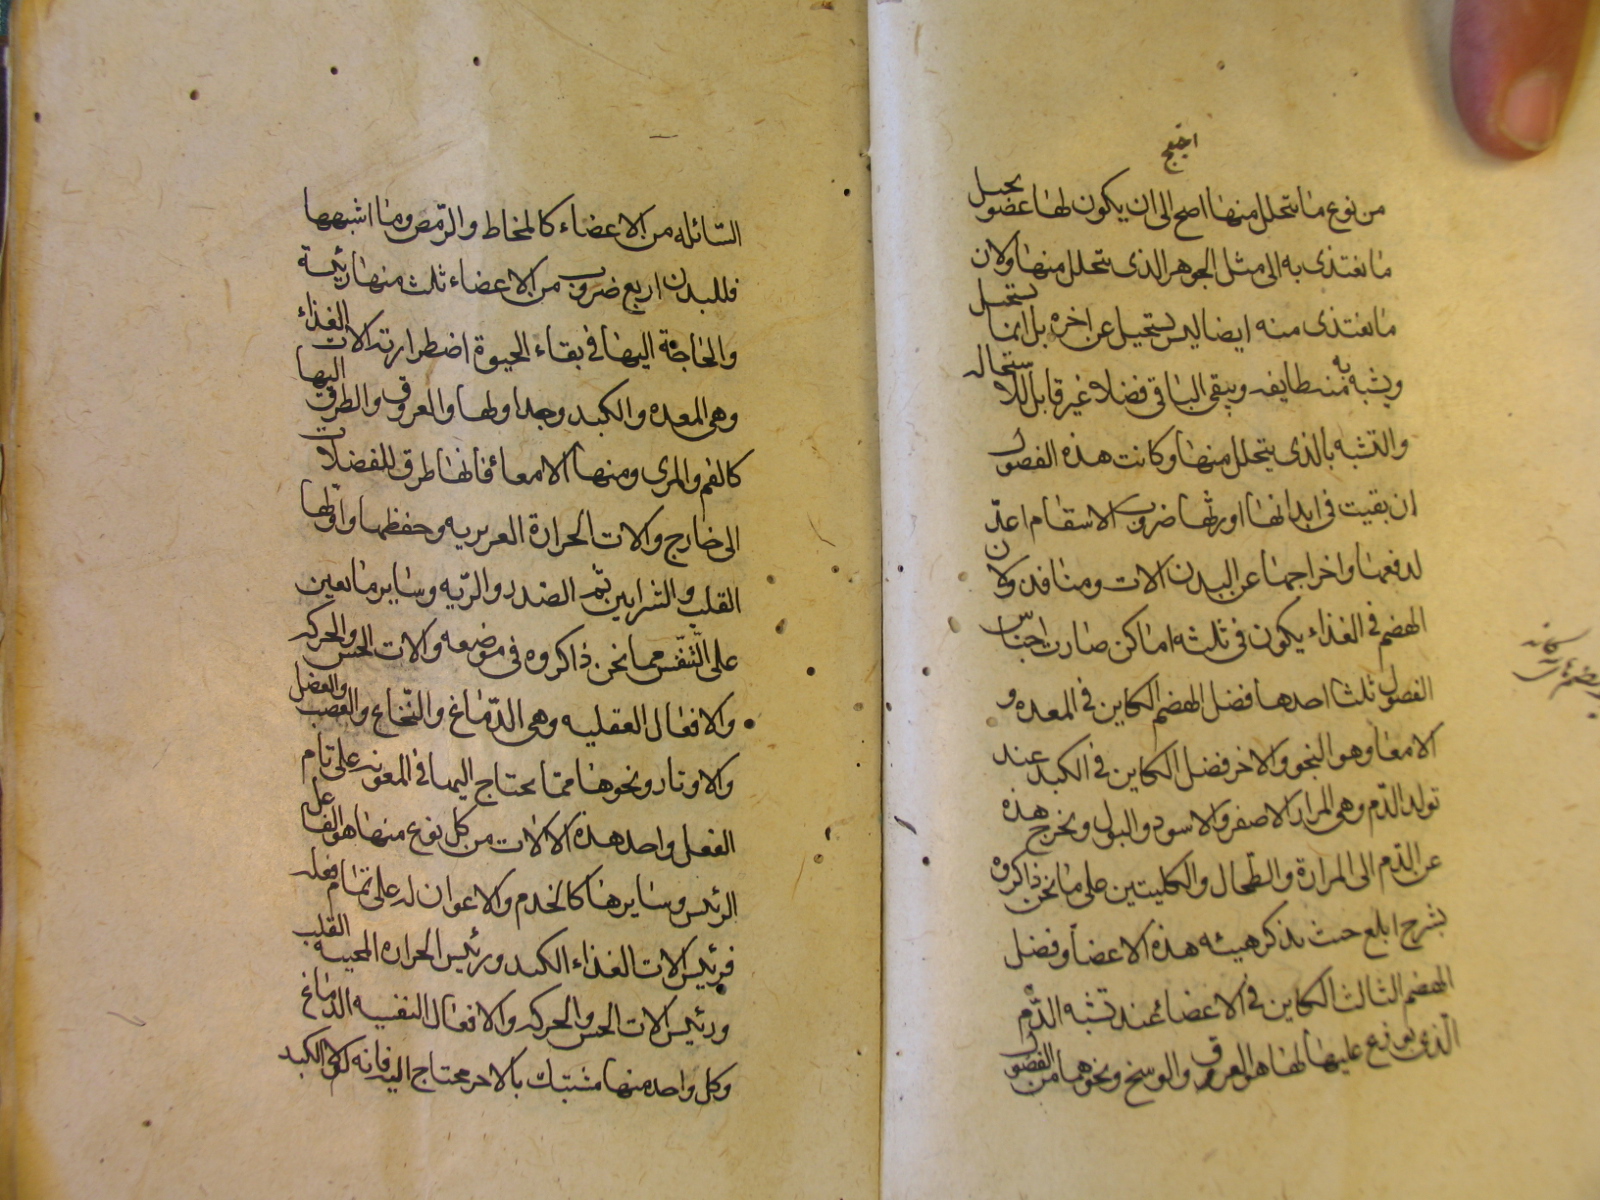 احتيج
من نوع ما يتحلل منها اصح الى ان يكون لها عضو يحيل
ما تغتذى به الى مثل الجوهر الذى يتحلل منها ولان
ما تغتذى منه ايضا ليس يستحيل عن اخره بل انما يستحيل
ويشبه به منه طايفه ويبقى الباقى فضلا غير قابل للاستحاله
والتشبه بالذى يتحلل منها وكانت هذه الفصول
ان بقيت فى ابدانها اورثها ضروب الاسقام اعدّ
لدفعها واخراجها عن البدن الات ومنافذ ولان
الهضم فى الغذاء يكون فى ثلثه اماكن صارت اجناس
الفصول ثلثا احدها فضل الهضم الكاين فى المعده و
الامعا وهو النجو والاخر فضل الكاين فى الكبد عند
تولد الدّم وهى المرار الاصفر والاسود والبول ويخرج هذه
عن الدّم الى المرارة والطّحال والكليتين على ما نحن ذاكروه
بشرح ابلغ حيث نذكر هيئه هذه الاعضا وفضل
الهضم الثالث الكاين فى الاعضا عند تشبه الدّم
الّذى يوزع عليها لها هو العروق والوسخ ونحوهما من الفضول
السّائله من الاعضاء كالمخاط والرّمص وما اشبهها
فللبدن اربع ضروب من الاعضاء ثلث منها رئيسة
والحاجة اليها فى بقاء الحيوة اضطراريه الات الغذاء
وهى المعده والكبد وجداولها والعروق والطرق اليها
كالفم والمرى ومنها الامعا فانها طرق للفضلات
الى خارج والات الحرارة الغريريه وحفظها واوّلها
القلب والشرايين ثمّ الصدر والرّيه وساير ما يعين
على التّنفّس مما نحن ذاكروه فى موضعه والات الحس والحركه
والافعال العقليه وهى الدّماغ والنّخاع والعصب والعضل
والاوتار ونحوها ممّا يحتاج اليها فى المعونه على تمام
الفعل واحد هذه الالات من كل نوع منها هو الفاعل
الرئيس وسايرها كالخدم والاعوان له على تمام فعله
فرئيس الات الغذاء الكبد ورئيس الحراره المحييه القلب
ورئيس الات الحس والحركه والافعال النفسيه الدّماغ
وكل واحد منها مشتبك بالاخر محتاج اليه فانه لولا الكبد